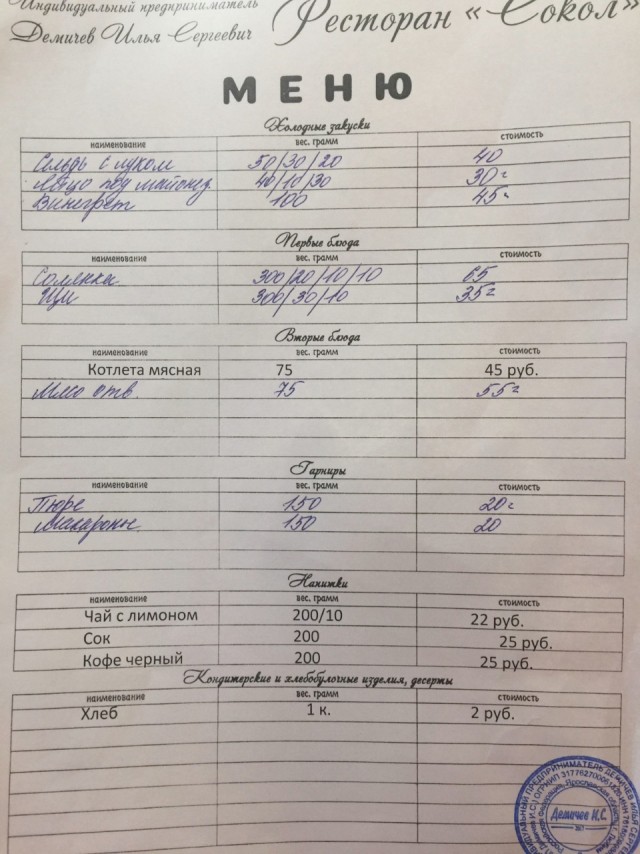 Индивидуальный предприниматель
Демичев Илья Сергеевич
Ресторан «Сокол»
МЕНЮ
Холодные закуски
наименование вес. грамм стоимость
Сельдь с луком 50/30/20 40
Яйцо под майонез 40/10/30 30=
Винегрет 100 45=
Первые блюда
наименование вес. грамм стоимость
Солянка 300/20/10/10 65
Щи 300/30/10 35=
Вторые блюда
наименование вес. грамм стоимость
Котлета мясная 75 45 руб.
Мясо отв. 75 55=
Гарниры
наименование вес. грамм стоимость
Пюре 150 20=
Макароны 150 20
Напитки
наименование вес. грамм стоимость
Чай с лимоном 200/10 22 руб.
Сок 200 25 руб.
Кофе черный 200 25 руб.
Кондитерские и хлебобулочные изделия, десерты
наименование вес. грамм стоимость
Хлеб 1 к. 2 руб.
Демичев И.С.